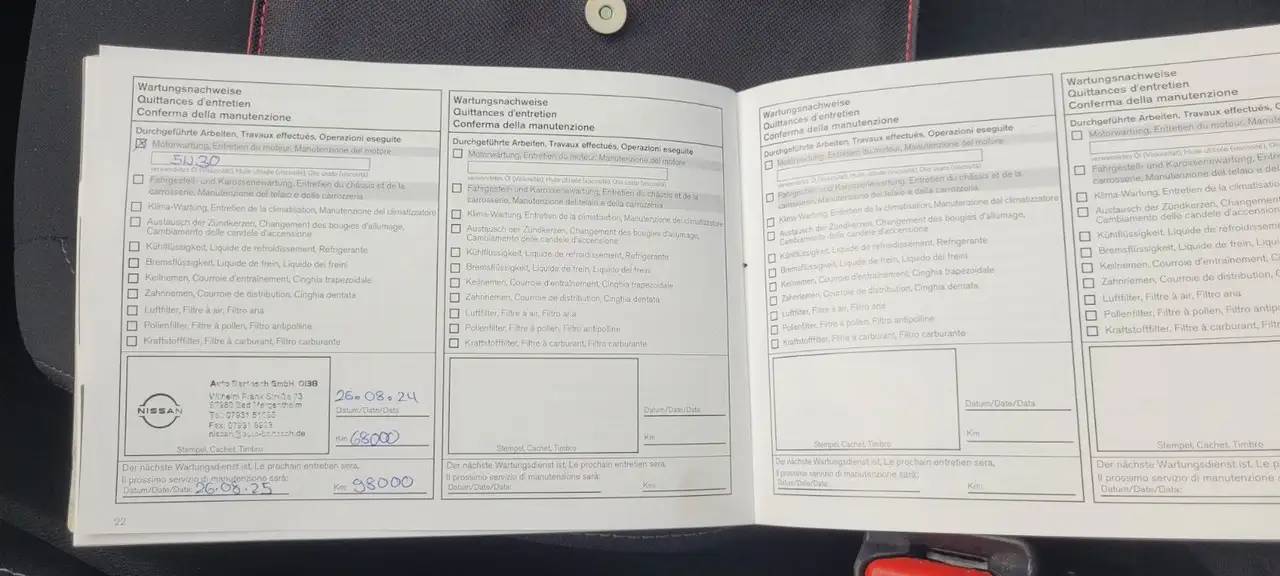 Wartungsnachweise
Quittances d'entretien
Conferma della manutenzione
Durchgeführte Arbeiten, Travaux effectués, Operazioni eseguite
Motorwartung, Entretien du moteur, Manutenzione del motore
5W30
verwendetes Öl (Viskosität), Huile utilisée (viscosité), Olio usato (viscosità)
Fahrgestell- und Karosseriewartung, Entretien du châssis et de la
carrosserie, Manutenzione del telaio e della carrozzeria
Klima-Wartung, Entretien de la climatisation, Manutenzione del climatizzatore
Austausch der Zündkerzen, Changement des bougies d'allumage,
Cambiamento delle candele d'accensione
Kühlflüssigkeit, Liquide de refroidissement, Refrigerante
Bremsflüssigkeit, Liquide de frein, Liquido dei freini
Keilriemen, Courroie d'entraînement, Cinghia trapezoidale
Zahnriemen, Courroie de distribution, Cinghia dentata
Luftfilter, Filtre à air, Filtro aria
Pollenfilter, Filtre à pollen, Filtro antipolline
Kraftstofffilter, Filtre à carburant, Filtro carburante
NISSAN
Auto Bartsch GmbH
Wilhelm Frank Straße 73
97980 Bad Mergentheim
Stempel, Cachet, Timbro
26.08.24
Datum/Date/Data
Km 68000
Der nächste Wartungsdienst ist, Le prochain entretien sera,
Il prossimo servizio di manutenzione sarà:
Datum/Date/Data: 26.08.25
Km: 98000
22
Wartungsnachweise
Quittances d'entretien
Conferma della manutenzione
Durchgeführte Arbeiten, Travaux effectués, Operazioni eseguite
Motorwartung, Entretien du moteur, Manutenzione del motore
verwendetes Öl (Viskosität), Huile utilisée (viscosité), Olio usato (viscosità)
Fahrgestell- und Karosseriewartung, Entretien du châssis et de la
carrosserie, Manutenzione del telaio e della carrozzeria
Klima-Wartung, Entretien de la climatisation, Manutenzione del climatizzatore
Austausch der Zündkerzen, Changement des bougies d'allumage,
Cambiamento delle candele d'accensione
Kühlflüssigkeit, Liquide de refroidissement, Refrigerante
Bremsflüssigkeit, Liquide de frein, Liquido dei freini
Keilriemen, Courroie d'entraînement, Cinghia trapezoidale
Zahnriemen, Courroie de distribution, Cinghia dentata
Luftfilter, Filtre à air, Filtro aria
Pollenfilter, Filtre à pollen, Filtro antipolline
Kraftstofffilter, Filtre à carburant, Filtro carburante
Stempel, Cachet, Timbro
Datum/Date/Data
Km
Der nächste Wartungsdienst ist, Le prochain entretien sera,
Il prossimo servizio di manutenzione sarà:
Datum/Date/Data:
Km:
Wartungsnachweise
Quittances d'entretien
Conferma della manutenzione
Durchgeführte Arbeiten, Travaux effectués, Operazioni eseguite
Motorwartung, Entretien du moteur, Manutenzione del motore
verwendetes Öl (Viskosität), Huile utilisée (viscosité), Olio usato (viscosità)
Fahrgestell- und Karosseriewartung, Entretien du châssis et de la
carrosserie, Manutenzione del telaio e della carrozzeria
Klima-Wartung, Entretien de la climatisation, Manutenzione del climatizzatore
Austausch der Zündkerzen, Changement des bougies d'allumage,
Cambiamento delle candele d'accensione
Kühlflüssigkeit, Liquide de refroidissement, Refrigerante
Bremsflüssigkeit, Liquide de frein, Liquido dei freini
Keilriemen, Courroie d'entraînement, Cinghia trapezoidale
Zahnriemen, Courroie de distribution, Cinghia dentata
Luftfilter, Filtre à air, Filtro aria
Pollenfilter, Filtre à pollen, Filtro antipolline
Kraftstofffilter, Filtre à carburant, Filtro carburante
Stempel, Cachet, Timbro
Datum/Date/Data
Km
Der nächste Wartungsdienst ist, Le prochain entretien sera,
Il prossimo servizio di manutenzione sarà:
Datum/Date/Data:
Km:
Wartungsnachweise
Quittances d'entretien
Conferma della manutenzione
Durchgeführte Arbeiten, Travaux effectués,
Motorwartung, Entretien du moteur,
verwendetes Öl (Viskosität), Huile utilisée (viscosité),
Fahrgestell- und Karosseriewartung,
carrosserie, Manutenzione del telaio e
Klima-Wartung, Entretien de la
Austausch der Zündkerzen, Changement
Cambiamento delle candele d'accensione
Kühlflüssigkeit, Liquide de
Bremsflüssigkeit, Liquide de frein,
Keilriemen, Courroie d'entraînement,
Zahnriemen, Courroie de distribution,
Luftfilter, Filtre à air, Filtro aria
Pollenfilter, Filtre à pollen, Filtro
Kraftstofffilter, Filtre à carburant,
Stempel, Cachet, Timbro
Der nächste Wartungsdienst ist, Le
Il prossimo servizio di manutenzione
Datum/Date/Data: